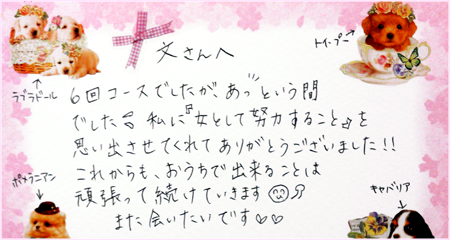 文さんへ
トイ・プー
ラブラドール
6回コースでしたが、あっという間
でした 私に『女として努力すること』を
思い出させてくれてありがとうございました!!
これからも、おうちで出来ることは
ポメラニアン
頑張って続けていきます
キャバリア
また会いたいです♡♡